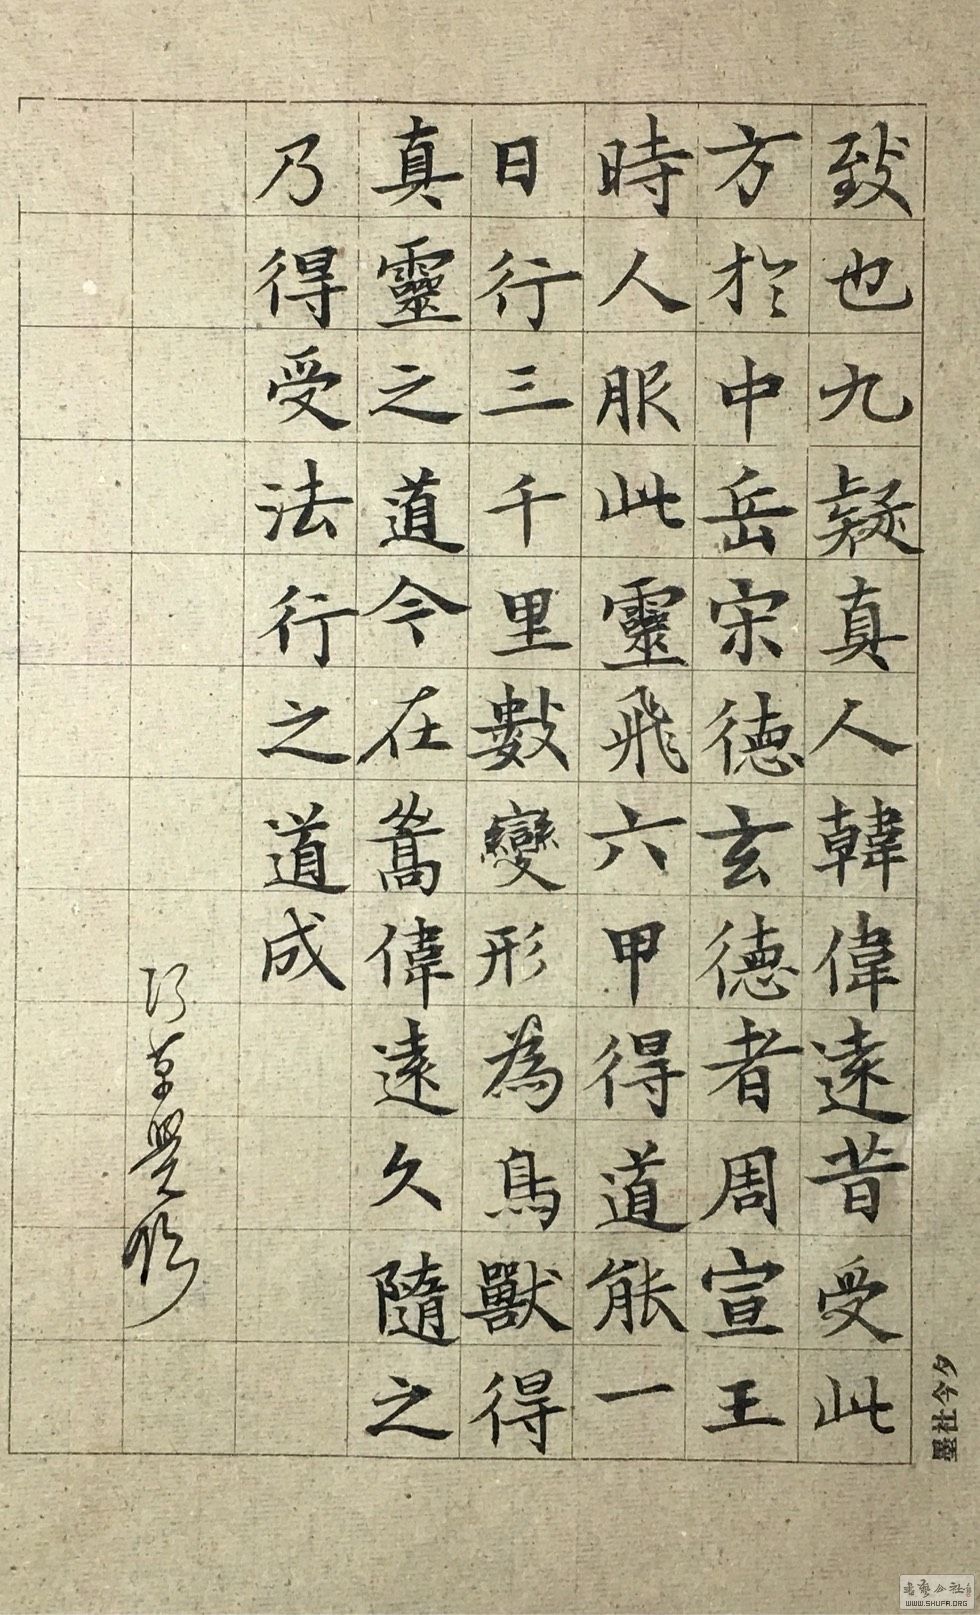 致也九疑真人韓偉遠昔受此
方於中岳宋德玄德者周宣王
時人服此靈飛六甲得道能一
日行三千里數變形為鳥獸得
真靈之道今在嵩偉遠久隨之
乃得受法行之道成
墨社今夕
WWW.SHUFA.ORG